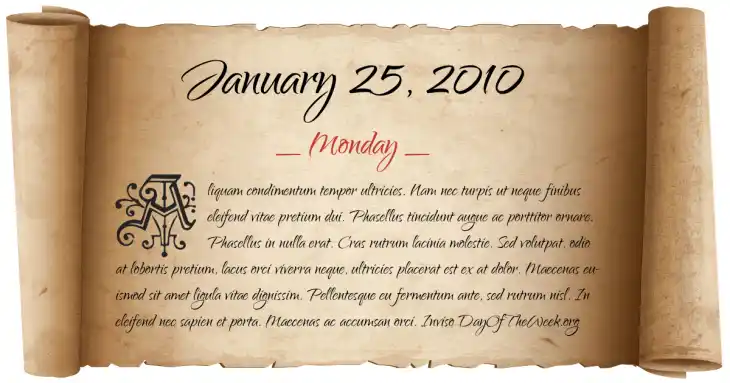 January 25, 2010
_ Monday _
Aliquam condimentum tempor ultricies. Nam nec turpis ut neque finibus
eleifend vitae pretium dui. Phasellus tincidunt augue ac porttitor ornare.
Phasellus in nulla erat. Cras rutrum lacinia molestie. Sed volutpat, odio
at lobortis pretium, lacus orci viverra neque, ultricies placerat est ex at dolor. Maecenas eu-
ismod sit amet ligula vitae dignissim. Pellentesque eu fermentum ante, sed rutrum nisl. In
eleifend nec sapien et porta. Maecenas ac accumsan orci. Inviso DayOfTheWeek.org